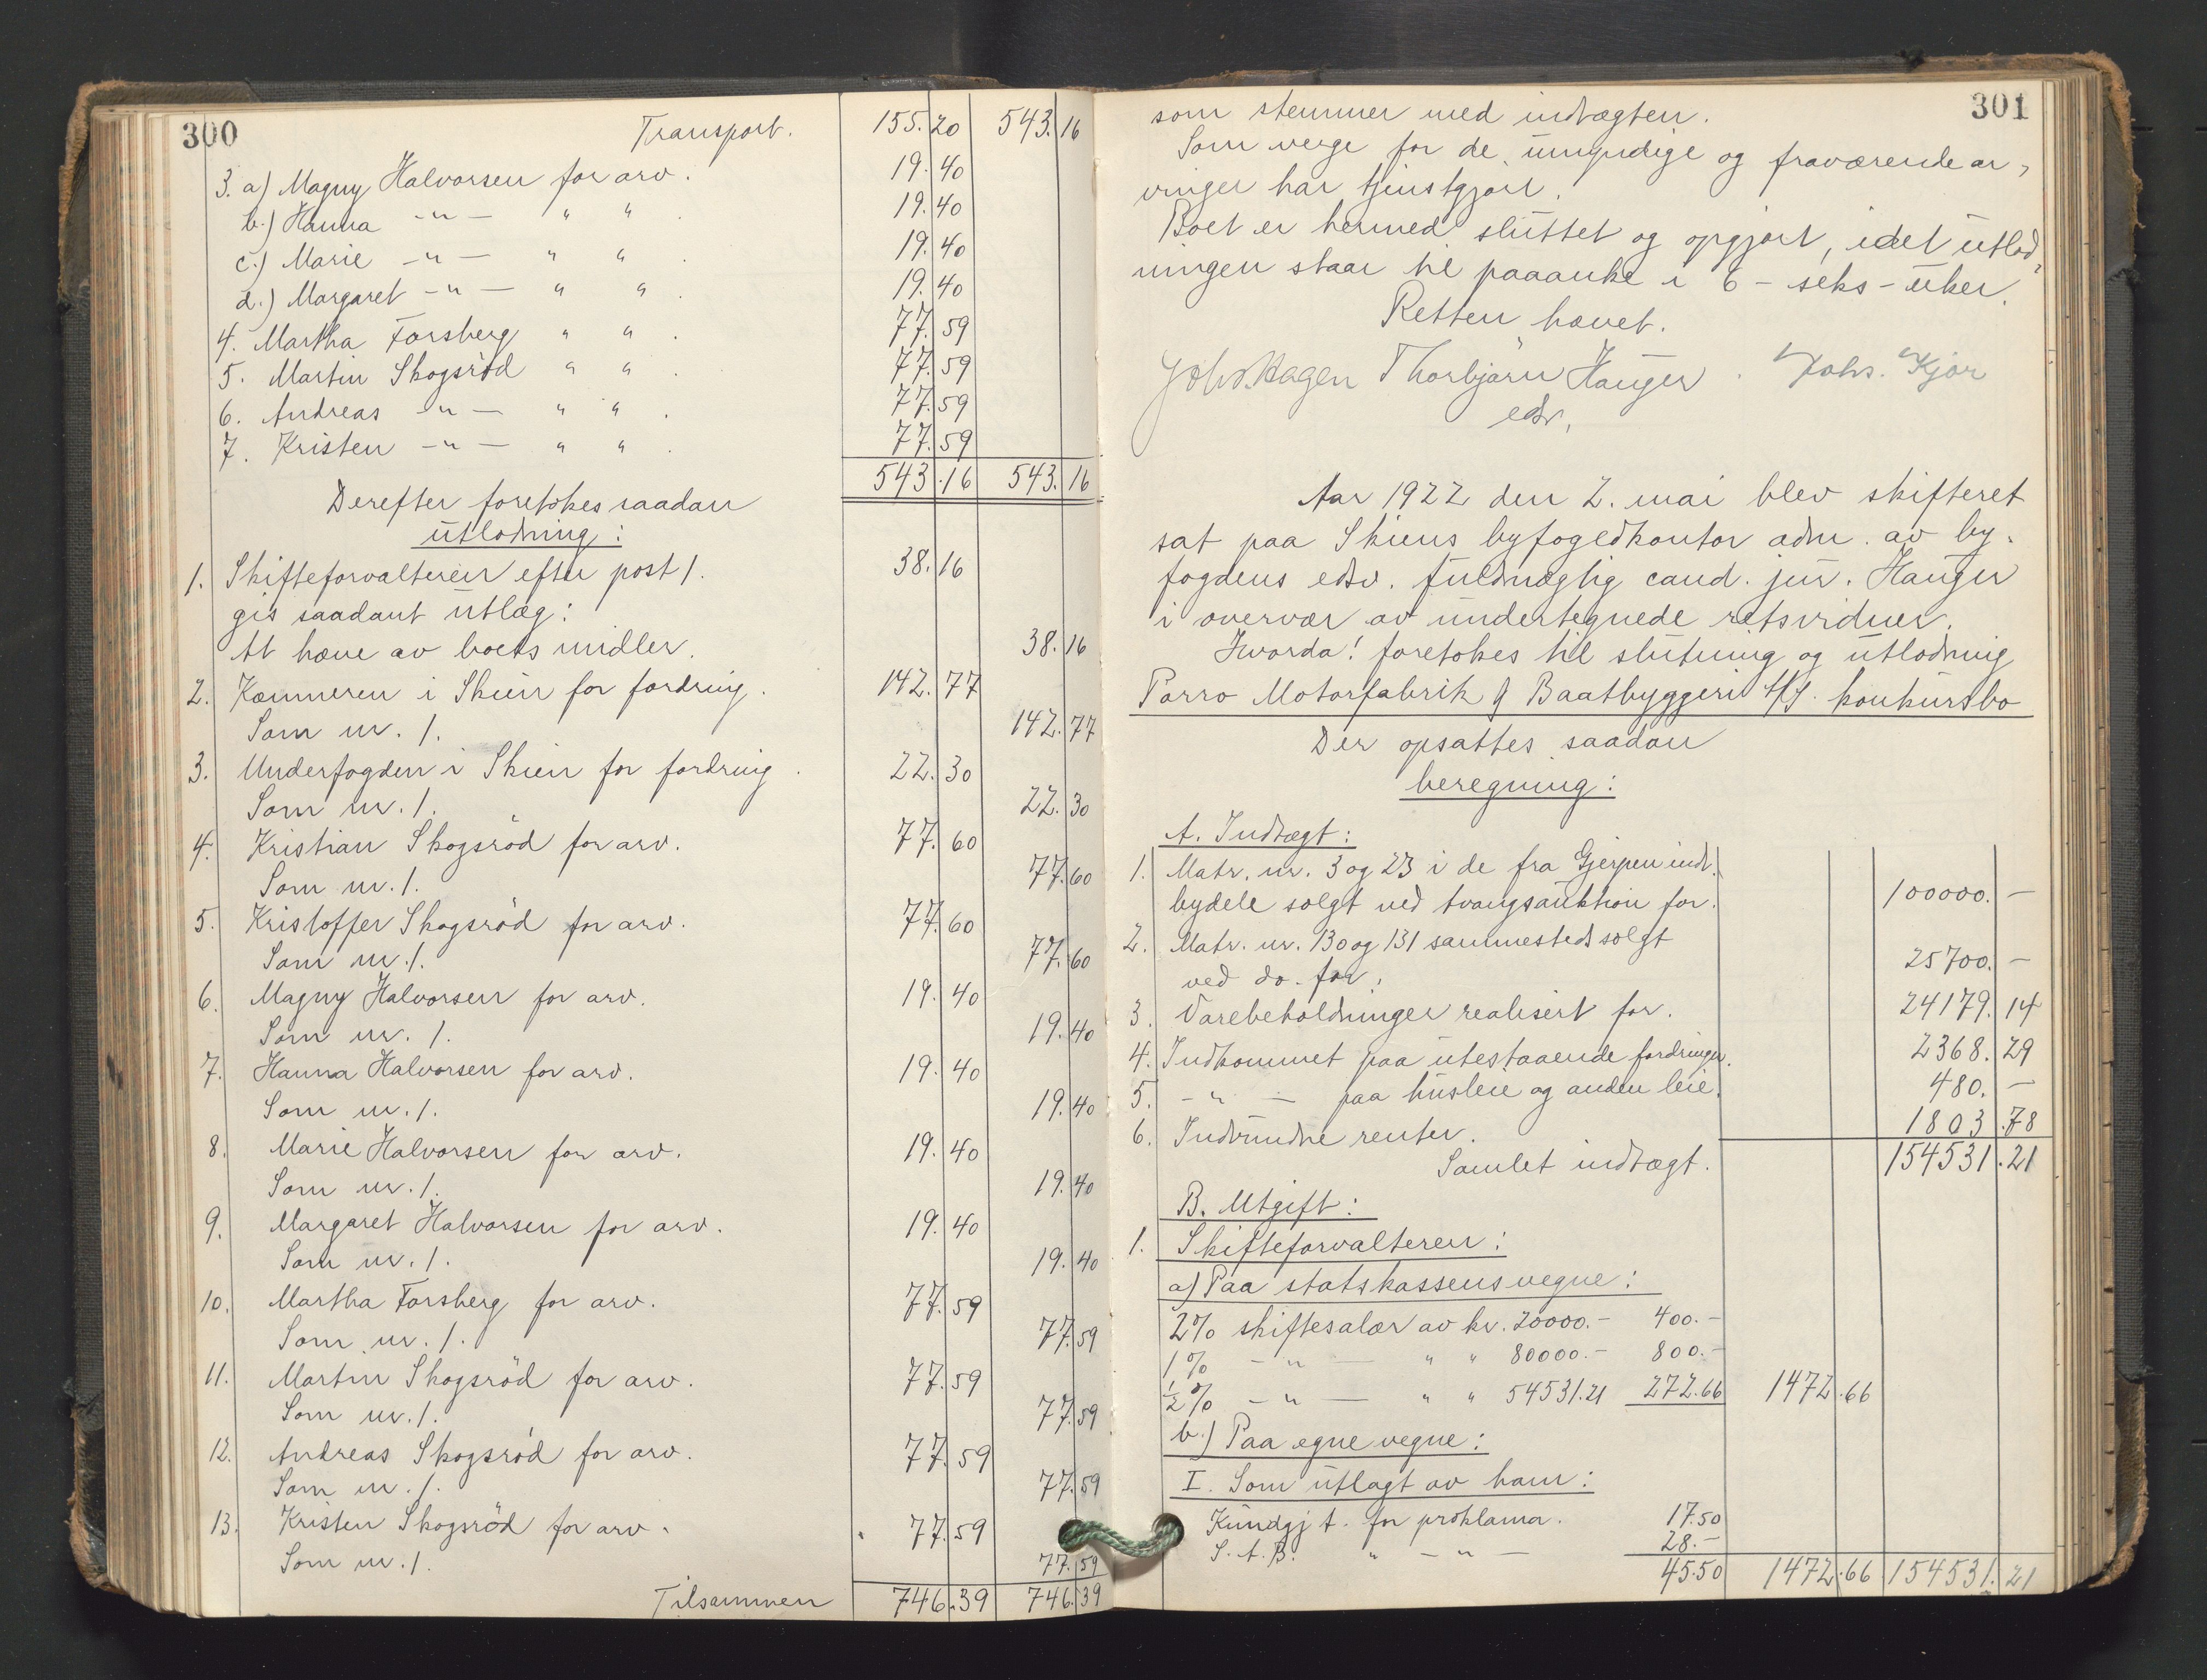 300
Transport. 155.20 543.16
3. a) Magny Halvorsen for arv. 19.40
b.) Hanna -"- " " . 19.40
c.) Marie -"- " " . 19.40
d.) Margaret -"- " " . 19.40
4. Martha Forsberg " " . 77.59
5. Martin Skogsröd " " . 77.59
6. Andreas -"- " " . 77.59
7. Kristen -"- " " . 77.59
543.16 543.16
Derefter foretokes saadan
utlodning:
1. Skifteforvalteren efter post 1. 38.16
gis saadant utlæg:
At hæve av boets midler. 38.16
2. Kæmneren i Skien for fordring. 142.77
Som nr. 1. 142.77
3. Underfogden i Skien for fordring. 22.30
Som nr. 1. 22.30
4. Kristian Skogsröd for arv. 77.60
Som nr. 1. 77.60
5. Kristoffer Skogsröd for arv. 77.60
Som nr. 1. 77.60
6. Magny Halvorsen for arv. 19.40
Som nr. 1. 19.40
7. Hanna Halvorsen for arv. 19.40
Som nr. 1. 19.40
8. Marie Halvorsen for arv. 19.40
Som nr. 1. 19.40
9. Margaret Halvorsen for arv. 19.40
Som nr. 1. 19.40
10. Martha Forsberg for arv. 77.59
Som nr. 1. 77.59
11. Martin Skogsröd for arv. 77.59
Som nr. 1. 77.59
12. Andreas Skogsröd for arv. 77.59
Som nr. 1. 77.59
13. Kristen Skogsröd for arv. 77.59
Som nr. 1. 77.59
Tilsammen 746.39 746.39
301
som stemmer med indtægten.
Som verge for de umyndige og fraværende ar-
vinger har tjenstgjort.
Boet er hermed sluttet og opgjort, idet utlod-
ningen staar til paaanke i 6 - seks - uker.
Retten hævet.
Johs. Hagen Thorbjörn Hauger. Johs. Kjör
edsv.
Aar 1922 den 2. mai blev skifteret
sat paa Skiens byfogedkontor adm. av by-
fogdens edsv. fuldmægtig cand. jur. Hauger
i overvær av undertegnede retsvidner.
Hvorda! foretokes til slutning og utlodning
Porro Motorfabrik & Baatbyggeri A/S. konkursbo
Der opsattes saadan
beregning:
A. Indtægt:
1. Matr. nr. 3 og 23 i de fra Gjerpen indl.
bydele solgt ved tvangsauktion for. 100000.-
2. Matr. nr. 130 og 131 sammesteds solgt
ved do. for. 25700.-
3. Varebeholdninger realisert for. 24179.14
4. Indkommet paa utestaaende fordringer. 2368.29
5. -"- paa husleie og anden leie. 480.-
6. Indvundne renter. 1803.78
Samlet indtægt. 154531.21
B. Utgift:
1. Skifteforvalteren:
a) Paa statskassens vegne:
2% skiftesalær av kr. 20000.- 400.-
1% -"- " " 80000.- 800.-
½% -"- " " 54531.21 272.66 1472.66
b.) Paa egne vegne:
I. Som utlagt av ham:
Kundgj t. for proklama. 17.50
S. A. B. " -"- 28.-
45.50 1472.66 154531.21